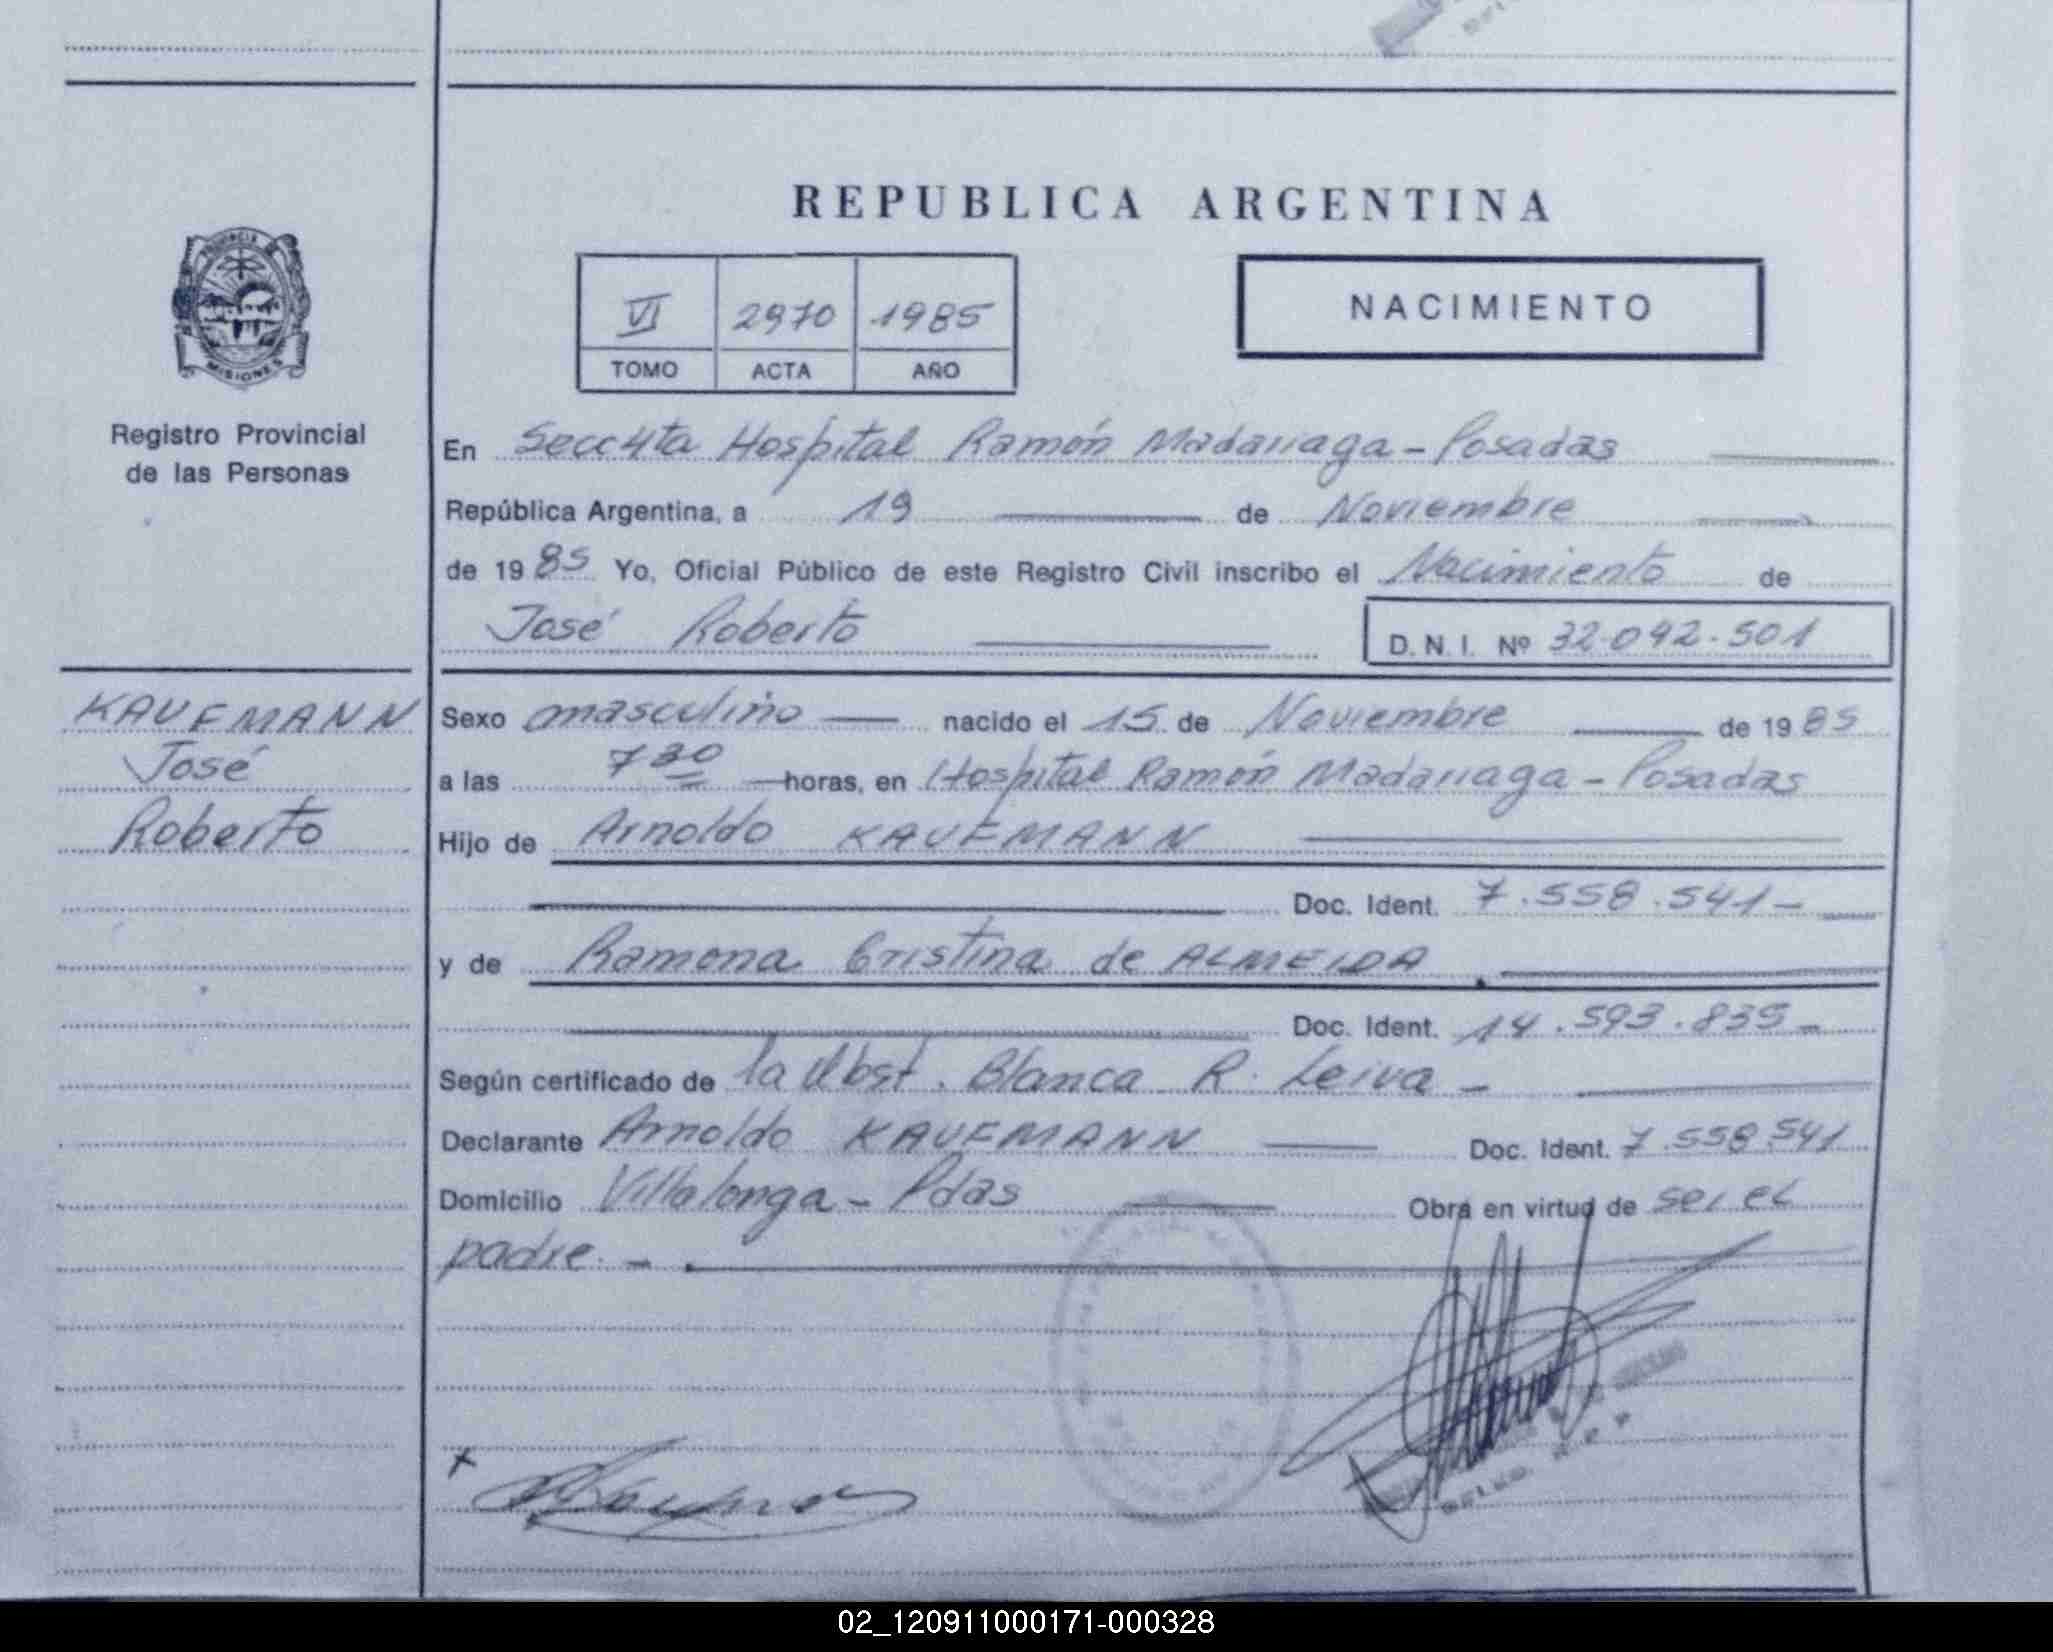 REPUBLICA ARGENTINA
PROVINCIA
MISIONES
Registro Provincial
de las Personas
VI 2970 1985
TOMO ACTA AÑO
NACIMIENTO
En Secc 4ta Hospital Ramón Madariaga - Posadas
República Argentina, a 19 de Noviembre
de 1985 Yo, Oficial Público de este Registro Civil inscribo el Nacimiento de
José Roberto
D. N. I. Nº 32.092.501
KAUFMANN
José
Roberto
Sexo masculino nacido el 15 de Noviembre de 1985
a las 7 30 horas, en Hospital Ramón Madariaga - Posadas
Hijo de Arnoldo KAUFMANN
Doc. Ident. 7.558.541-
y de Ramona Cristina de ALMEIDA
Doc. Ident. 14.593.835-
Según certificado de la Obst. Blanca R. Leiva -
Declarante Arnoldo KAUFMANN Doc. Ident. 7.558.541
Domicilio Villalonga - Pdas Obra en virtud de ser el
padre. -
x
02_120911000171-000328